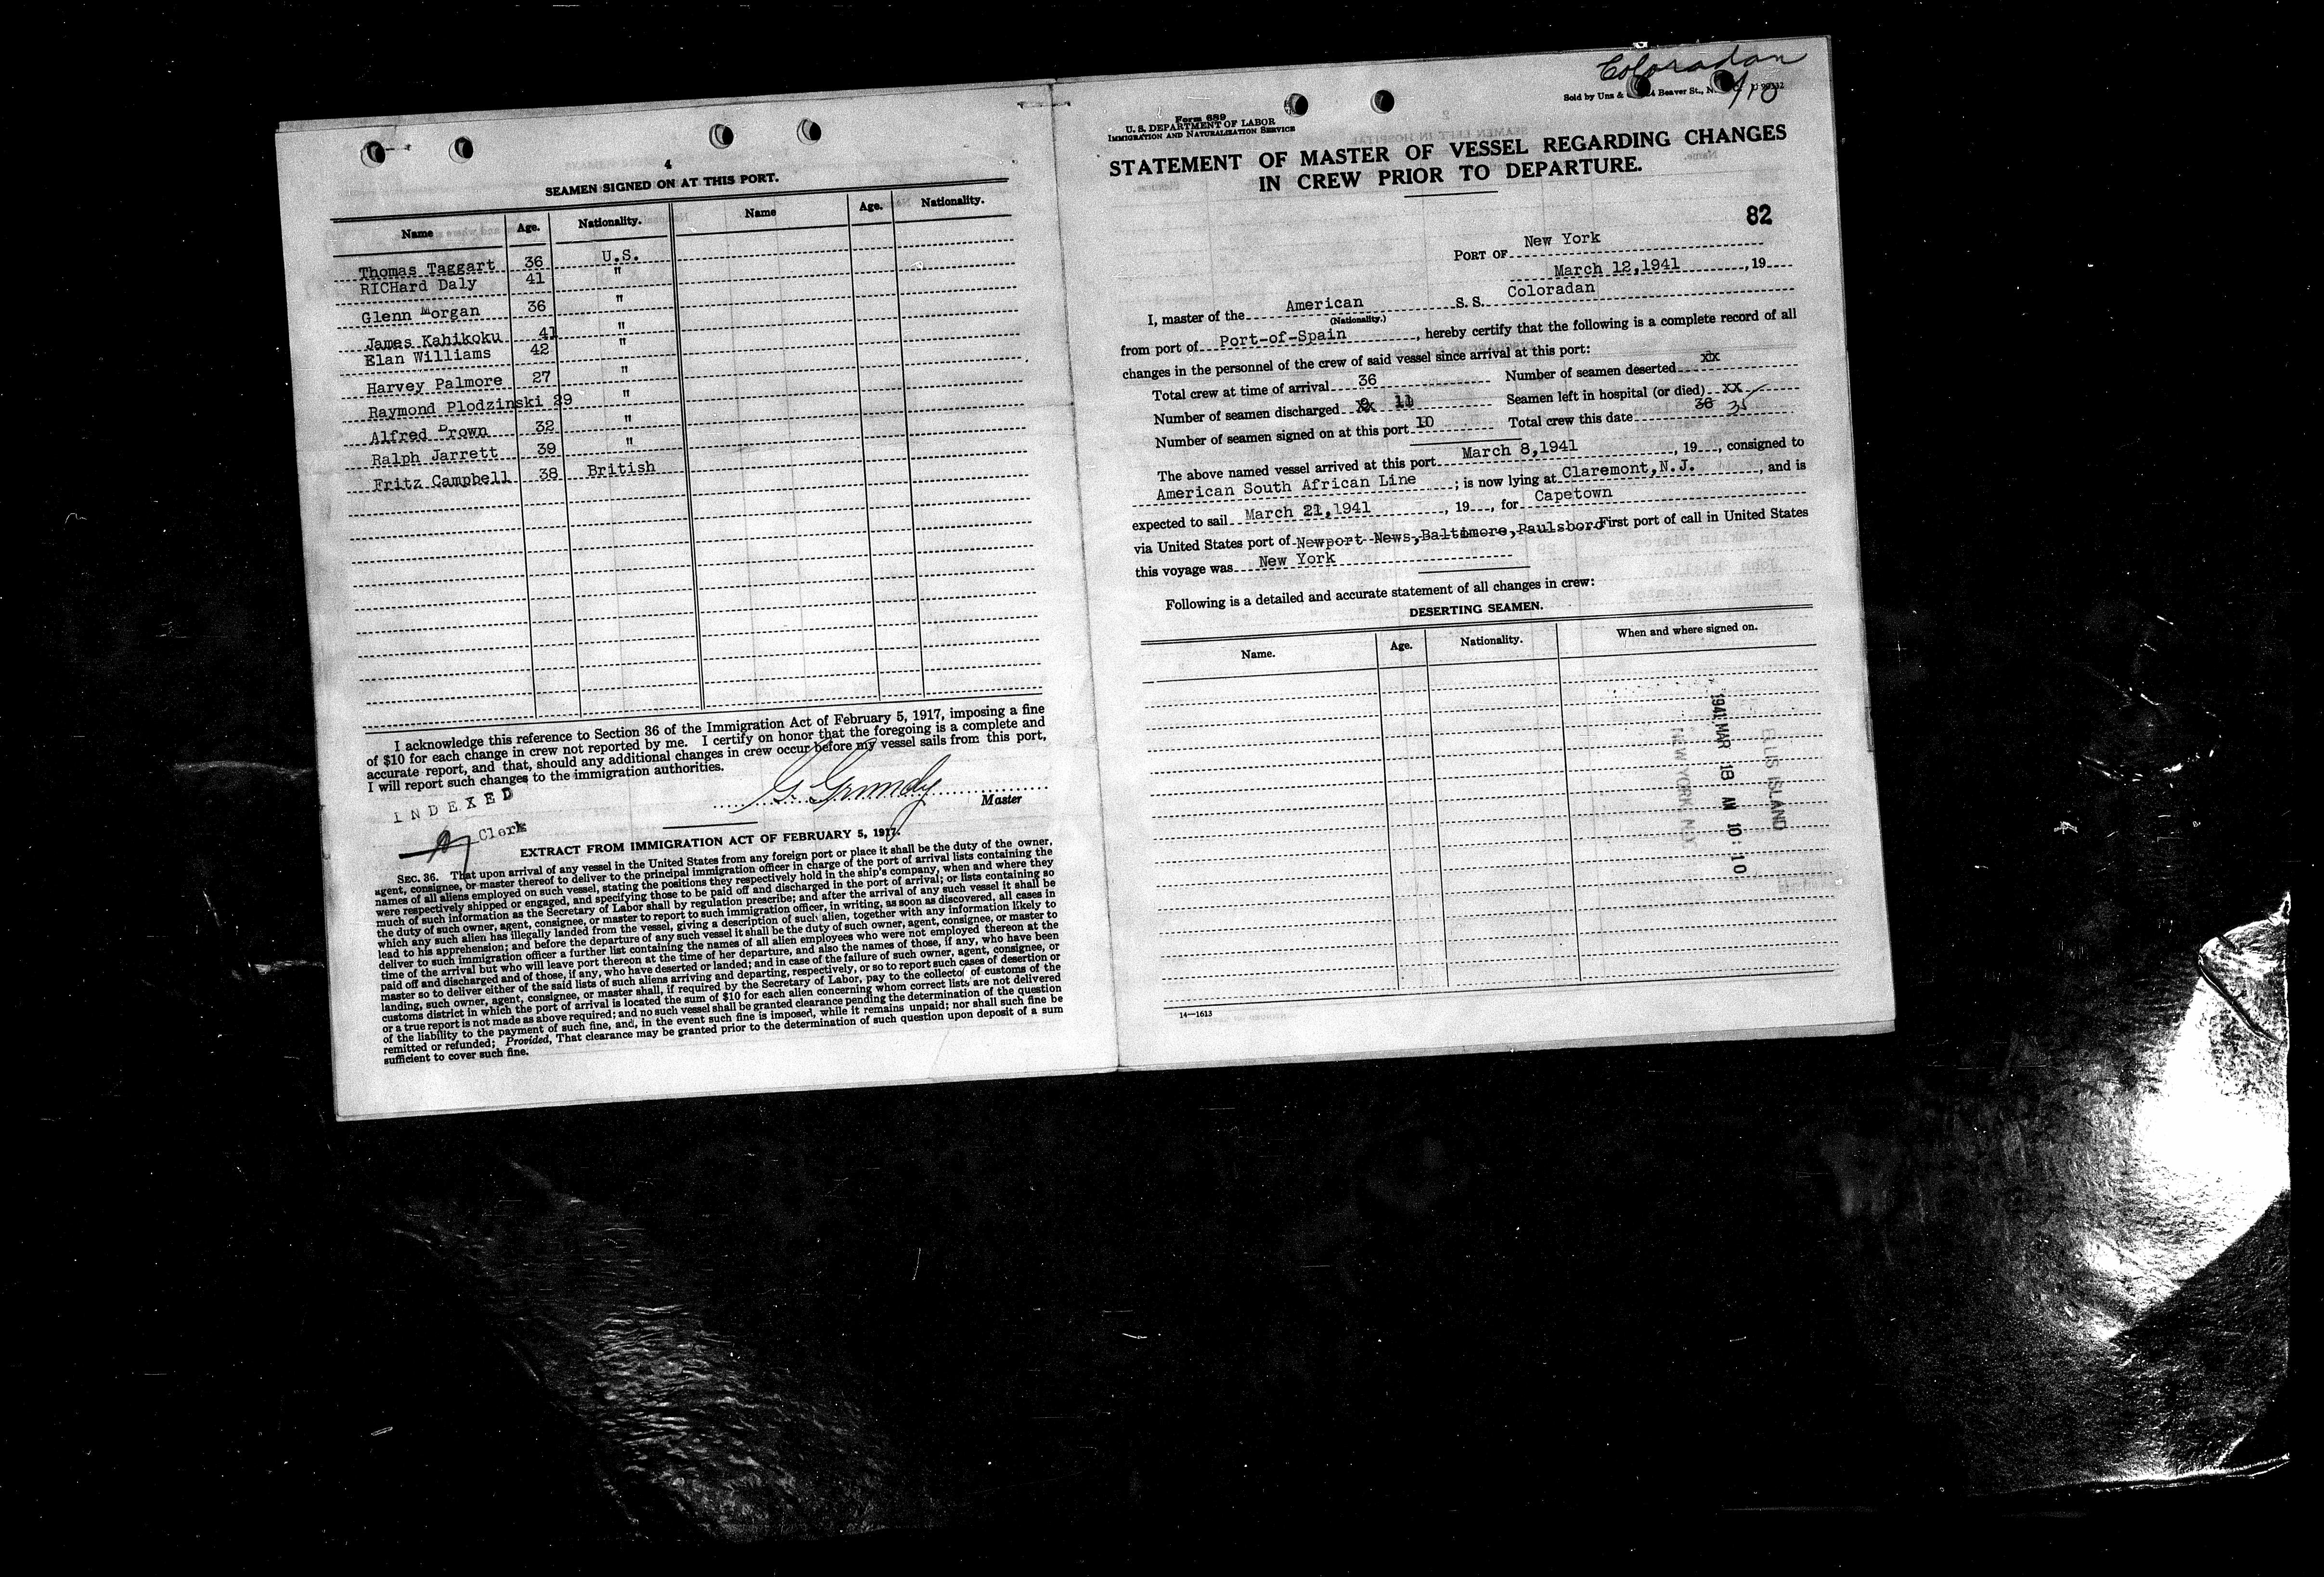 4
SEAMEN SIGNED ON AT THIS PORT.
Name Age. Nationality. Name Age. Nationality.
Thomas Taggart 36 U.S.
RICHard Daly 41 "
Glenn Morgan 36 "
James Kahikoku 41 "
Elan Williams 42 "
Harvey Palmore 27 "
Raymond Plodzinski 29 "
Alfred Brown 32 "
Ralph Jarrett 39 "
Fritz Campbell 38 British
I acknowledge this reference to Section 36 of the Immigration Act of February 5, 1917, imposing a fine
of $10 for each change in crew not reported by me. I certify on honor that the foregoing is a complete and
accurate report, and that, should any additional changes in crew occur before my vessel sails from this port,
I will report such changes to the immigration authorities.
G. Grundy
Master
INDEXED
Clerk
EXTRACT FROM IMMIGRATION ACT OF FEBRUARY 5, 1917.
SEC. 36. That upon arrival of any vessel in the United States from any foreign port or place it shall be the duty of the owner,
agent, consignee, or master thereof to deliver to the principal immigration officer in charge of the port of arrival lists containing the
names of all aliens employed on such vessel, stating the positions they respectively hold in the ship's company, when and where they
were respectively shipped or engaged, and specifying those to be paid off and discharged in the port of arrival; or lists containing so
much of such information as the Secretary of Labor shall by regulation prescribe; and after the arrival of any such vessel it shall be
the duty of such owner, agent, consignee, or master to report to such immigration officer, in writing, as soon as discovered, all cases in
which any such alien has illegally landed from the vessel, giving a description of such alien, together with any information likely to
lead to his apprehension; and before the departure of any such vessel it shall be the duty of such owner, agent, consignee, or master to
deliver to such immigration officer a further list containing the names of all alien employees who were not employed thereon at the
time of the arrival but who will leave port thereon at the time of her departure, and also the names of those, if any, who have been
paid off and discharged and of those, if any, who have deserted or landed; and in case of the failure of such owner, agent, consignee, or
master so to deliver either of the said lists of such aliens arriving and departing, respectively, or so to report such cases of desertion or
landing, such owner, agent, consignee, or master shall, if required by the Secretary of Labor, pay to the collector of customs of the
customs district in which the port of arrival is located the sum of $10 for each alien concerning whom correct lists are not delivered
or a true report is not made as above required; and no such vessel shall be granted clearance pending the determination of the question
of the liability to the payment of such fine, and, in the event such fine is imposed, while it remains unpaid; nor shall such fine be
remitted or refunded; Provided, That clearance may be granted prior to the determination of such question upon deposit of a sum
sufficient to cover such fine.
Coloradan
Sold by Uns & Beaver St., N.
Form 689
U. S. DEPARTMENT OF LABOR
IMMIGRATION AND NATURALIZATION SERVICE
STATEMENT OF MASTER OF VESSEL REGARDING CHANGES
IN CREW PRIOR TO DEPARTURE.
82
PORT OF New York
March 12,1941, 19
I, master of the American S. S. Coloradan
(Nationality.)
from port of Port-of-Spain, hereby certify that the following is a complete record of all
changes in the personnel of the crew of said vessel since arrival at this port:
Total crew at time of arrival 36 Number of seamen deserted xx
Number of seamen discharged 11 Seamen left in hospital (or died) xx
Number of seamen signed on at this port 10 Total crew this date 36 35
The above named vessel arrived at this port March 8,1941, 19, consigned to
American South African Line; is now lying at Claremont,N.J., and is
expected to sail March 21,1941, 19, for Capetown
via United States port of Newport News,Baltimore,Paulsboro First port of call in United States
this voyage was New York
Following is a detailed and accurate statement of all changes in crew:
DESERTING SEAMEN.
Name. Age. Nationality. When and where signed on.
ELLIS ISLAND
1941 MAR 18 AM 10:10
NEW YORK N.Y.
14—1613